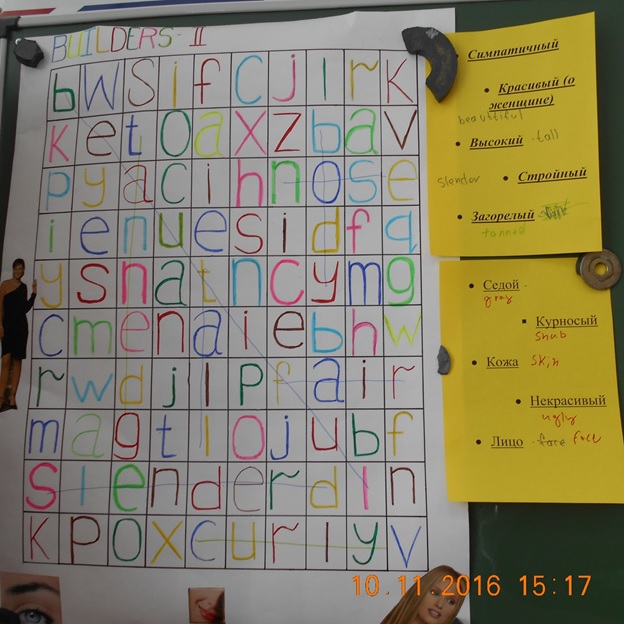 BUILDERS-II
b W S i f C j l r K
K e t O a x z b a v
p y a c i h n o s e
i e n u e s i d f q
y s n a t n c y m g
c m e n a i e b h w
r w d j l p f a i r
m a g t l o j u b f
S l e n d e r d l n
K P O x c u r l y v
Симпатичный
• Красивый (о
женщине)
beautiful
• Высокий - tall
slender • Стройный
• Загорелый
tanned
• Седой -
gray
▪ Курносый
Snub
• Кожа skin
• Некрасивый
ugly
• Лицо - face face
10.11.2016 15:17